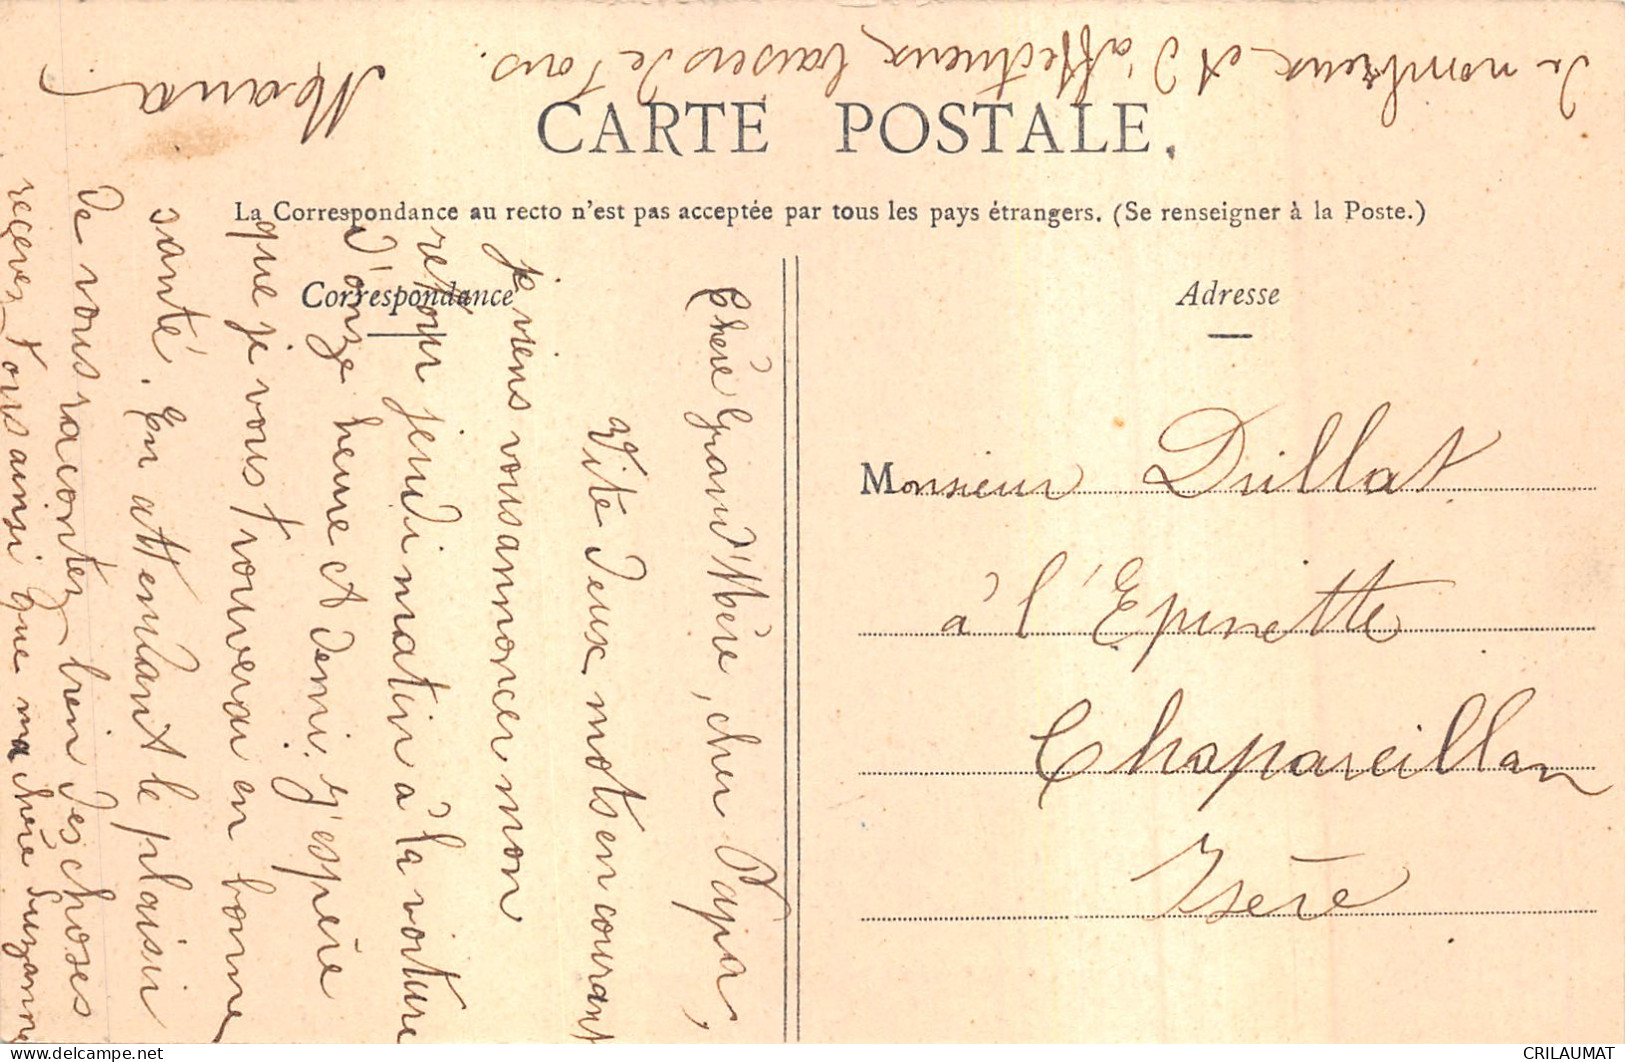 CARTE POSTALE.
La Correspondance au recto n'est pas acceptée par tous les pays étrangers. (Se renseigner à la Poste.)
Correspondance
Chère Grand'Mère, cher Papa,
Vite deux mots en courant
je viens vous annoncer mon
retour jeudi matin à la voiture
d'onze heure et demi. j'espère
que je vous trouverai en bonne
santé. En attendant le plaisir
de vous racontez bien des choses
recevez tous ainsi que ma chère Suzanne
de nombreux et d'affectueux baisers de tous.
Adresse
Monsieur Dullat
à l'Epinette
Chapareillan
Isère
CRILAUMAT